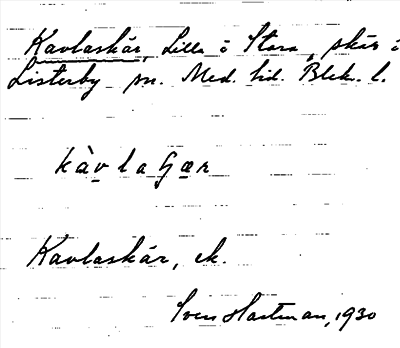 Kavlaskär, Lilla o Stora, skär i
Listerby sn. Med. hd. Blek. l.
kàvlaʃær
Kavlaskär, ek.
Sven Hartman, 1930